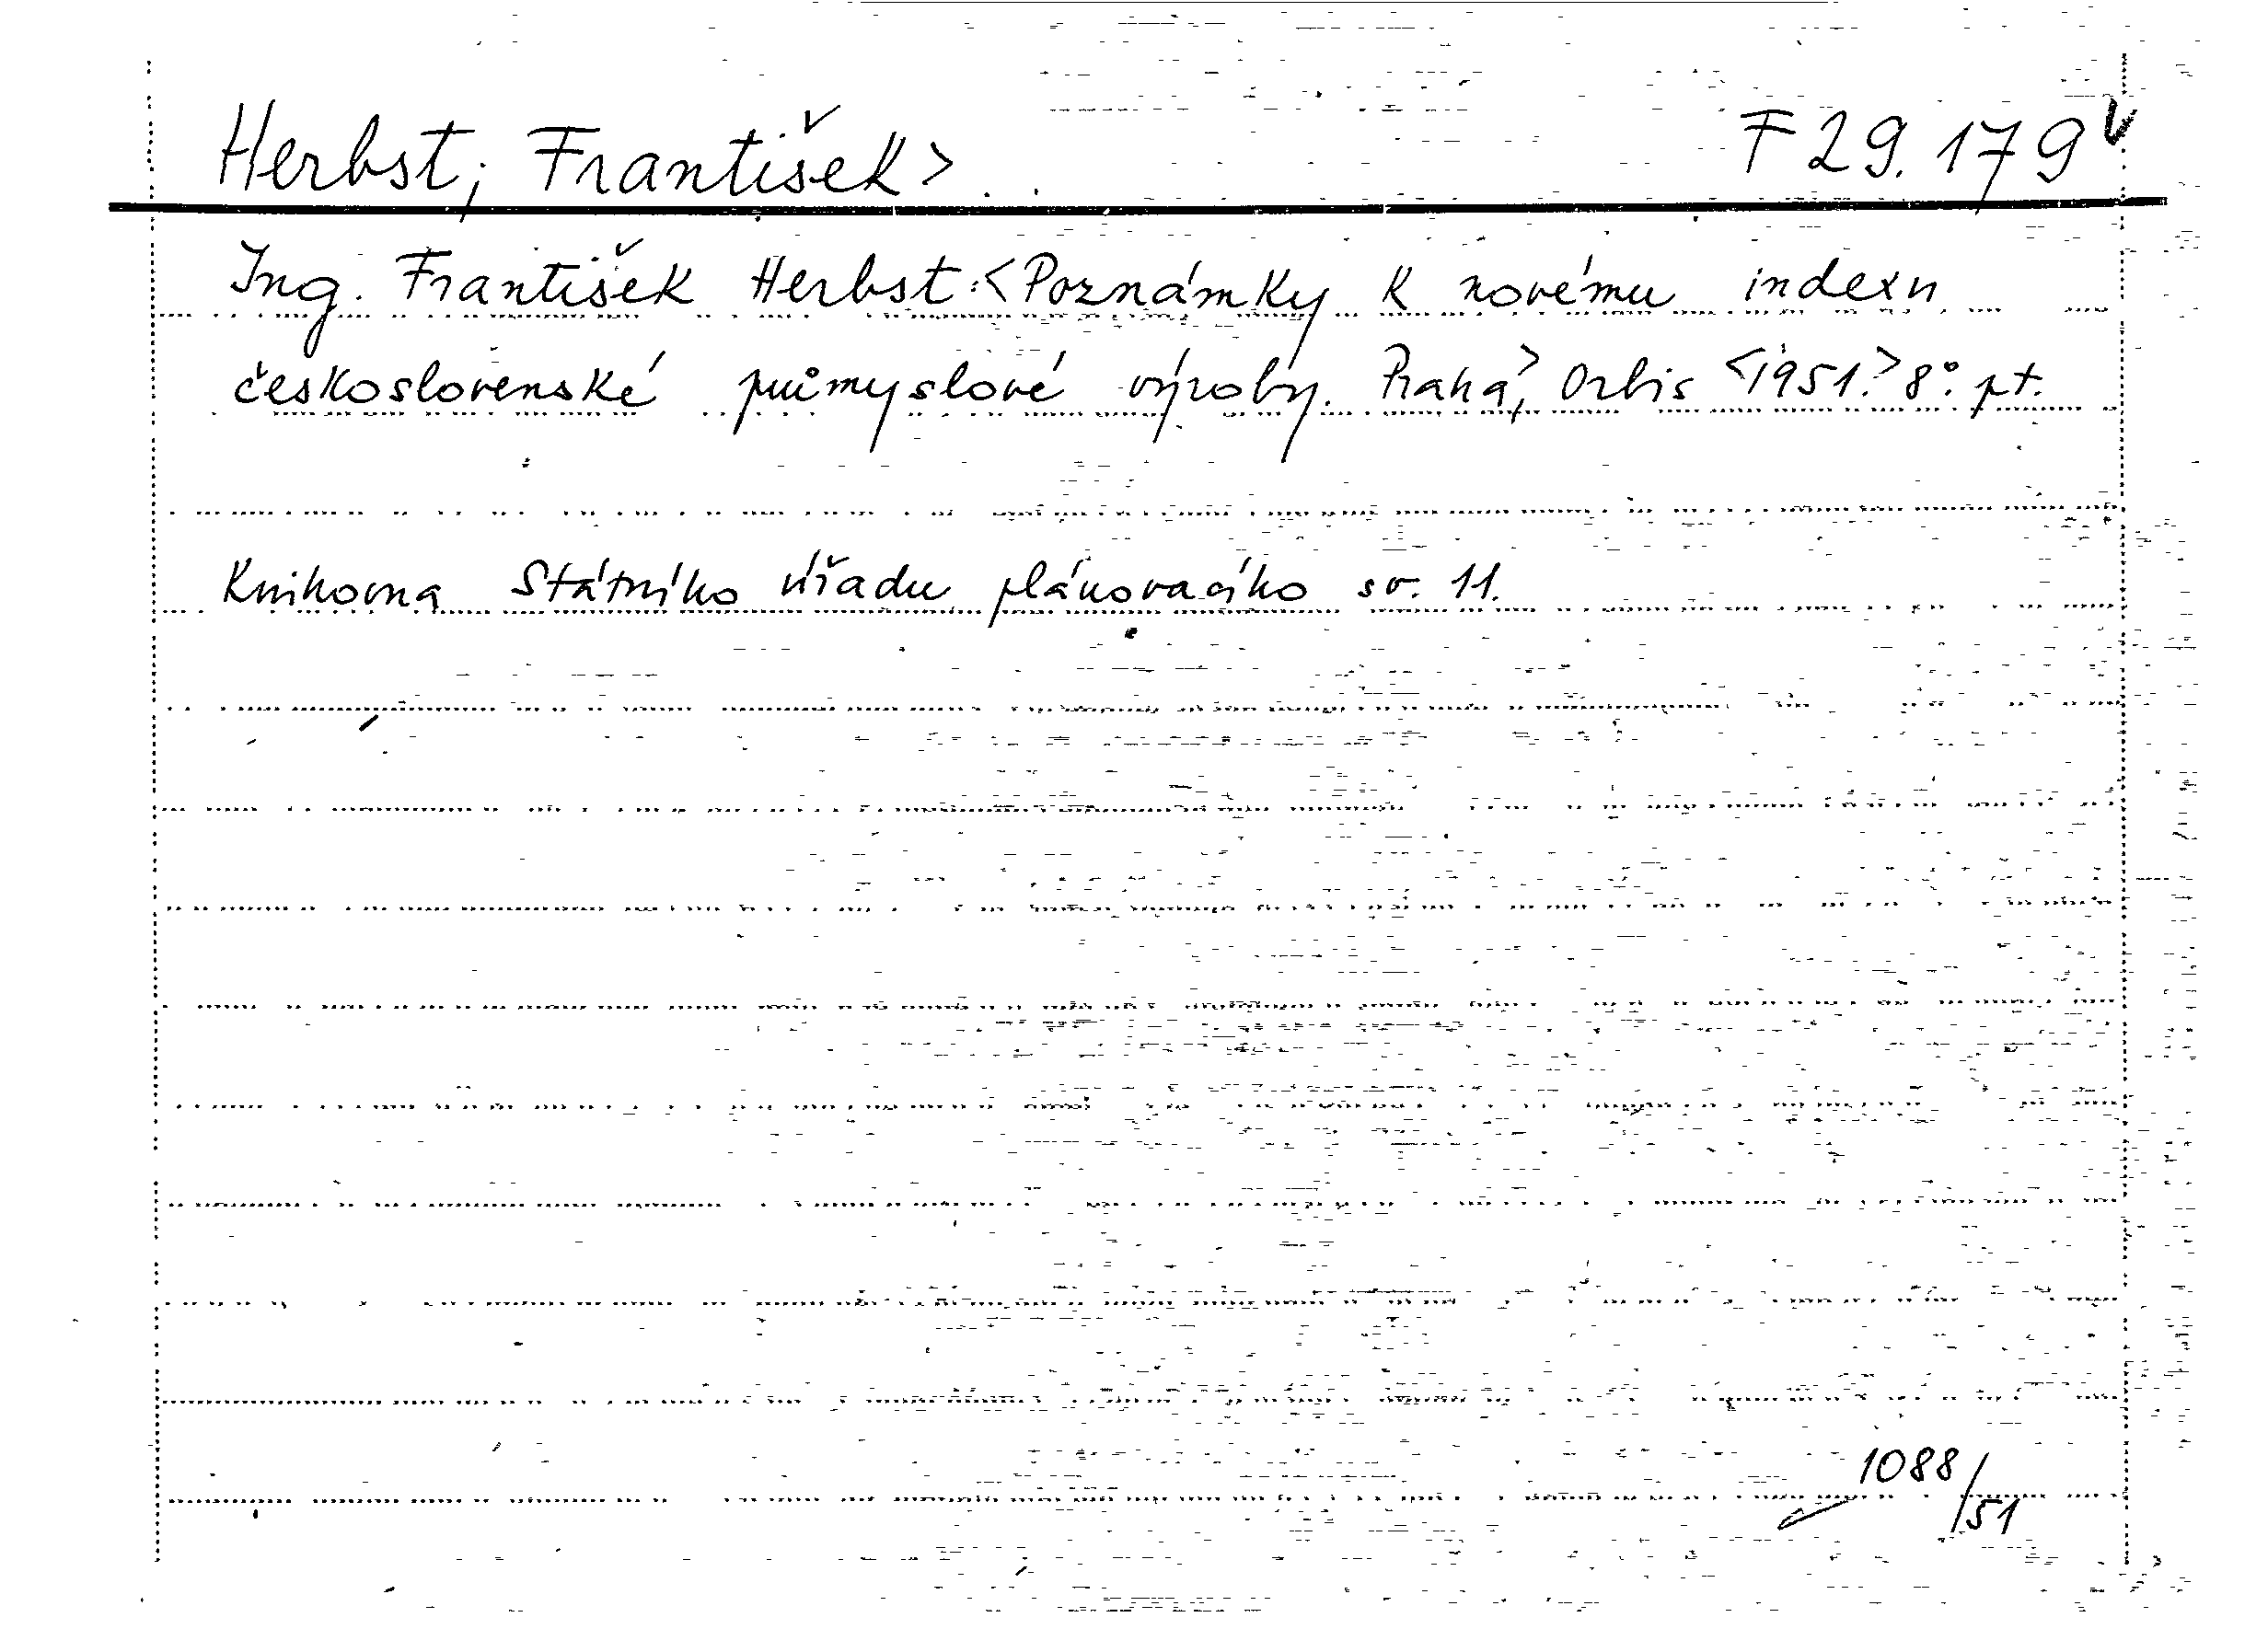 Herbst, František> F 29.179v
Ing. František Herbst:<Poznámky k novému indexu
československé průmyslové výroby. Praha>, Orbis <1951.> 8°. pt.
Knihovna Státního úřadu plánovacího sv. 11.
1088/51